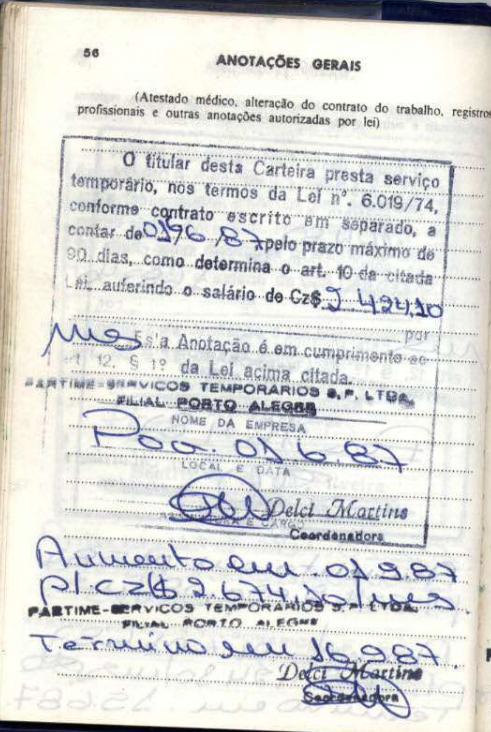 56
ANOTAÇÕES GERAIS
(Atestado médico, alteração do contrato do trabalho, registros
profissionais e outras anotações autorizadas por lei)
O titular desta Carteira presta serviço
temporário, nos termos da Lei nº. 6.019/74,
conforme contrato escrito em separado, a
contar de 01 6 87 pelo prazo máximo de
90 dias, como determina o art. 10 da citada
Lei, auferindo o salário de Cz$ 2 424,10
por
mês Es'a Anotação é em cumprimento ao
art 12, § 1º da Lei acima citada.
PARTIME-SERVICOS TEMPORARIOS S.P. LTDA.
FILIAL PORTO ALEGRE
NOME DA EMPRESA
Poa. 01 6 87
LOCAL E DATA
Delci Martins
E CARGO
Coordenadora
Aumento em 01 9 87
p/ CZ$ 2.674,20/mês.
PARTIME-SERVICOS TEMPORARIOS S.P. LTDA.
FILIAL PORTO ALEGRE
Termino em 16 9 87.
Delci Martins
Coordenadora